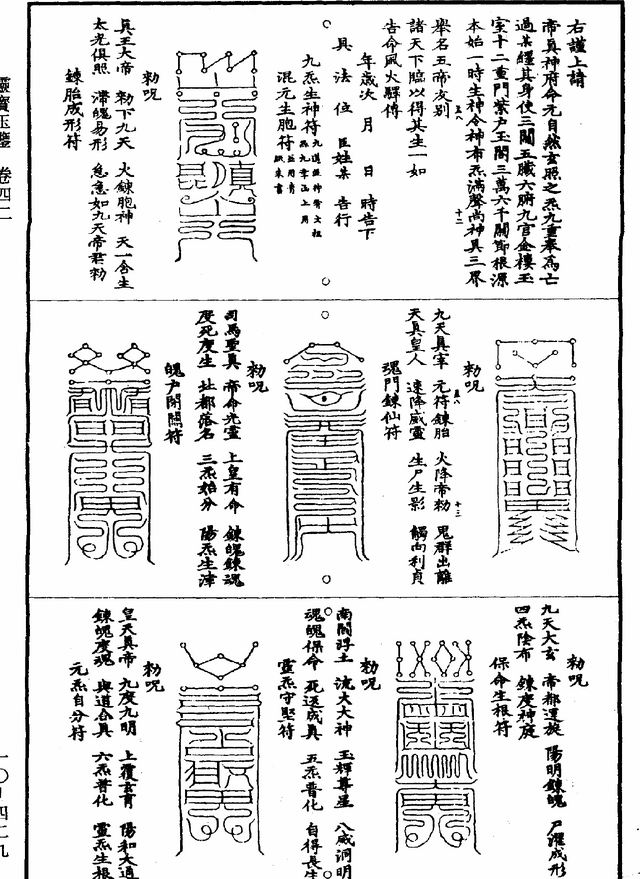 右謹上請
帝真神府命元自然玄照之炁九重奉為亡
過某纏其身使三關五臟六腑九宮金樓玉
室十二重門紫戶玉閣三萬六千關節根源
本始一時生神令神布炁滿聲尚神具三界
舉名五帝友別
諸天下臨以得其生一如
告命風火驛傳
年歲次 月 日 時告下
具 法 位 臣姓某 告行
九炁生神符
混元生胞符
勑呪
真王大帝 勑下九天 火鍊胞神 天一含生
太光俱照 滯魄易形 急急如九天帝君勑
鍊胎成形符
勑呪
九天真宰 元符鍊胎 火降帝勑 鬼群出離
天真皇人 速降威靈 生尸生影 觸向利貞
魂門鍊仙符
勑呪
司馬聖真 帝命光靈 上皇有命 鍊魄鍊魂
度死度生 社都落名 三炁始分 陽炁生津
魄戶閉關符
勑呪
九天大玄 帝都還旋 陽明鍊魄 尸濯成形
四炁陰布 鍊度神庭
保命生根符
勑呪
南閻浮土 流火大神 玉輝尊星 八威洞明
魂魄保命 死返成真 五炁普化 自得長生
靈炁守堅符
勑呪
皇天真帝 九度九明 上覆玄育 陽和大通
鍊魄度魂 與道合真 六炁普化 靈炁生根
元炁自分符
靈寶玉鑒 卷四二
一〇—四二九